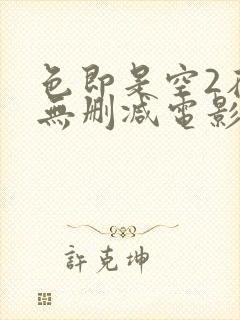 色即是空2在
無删减電影
許克坤